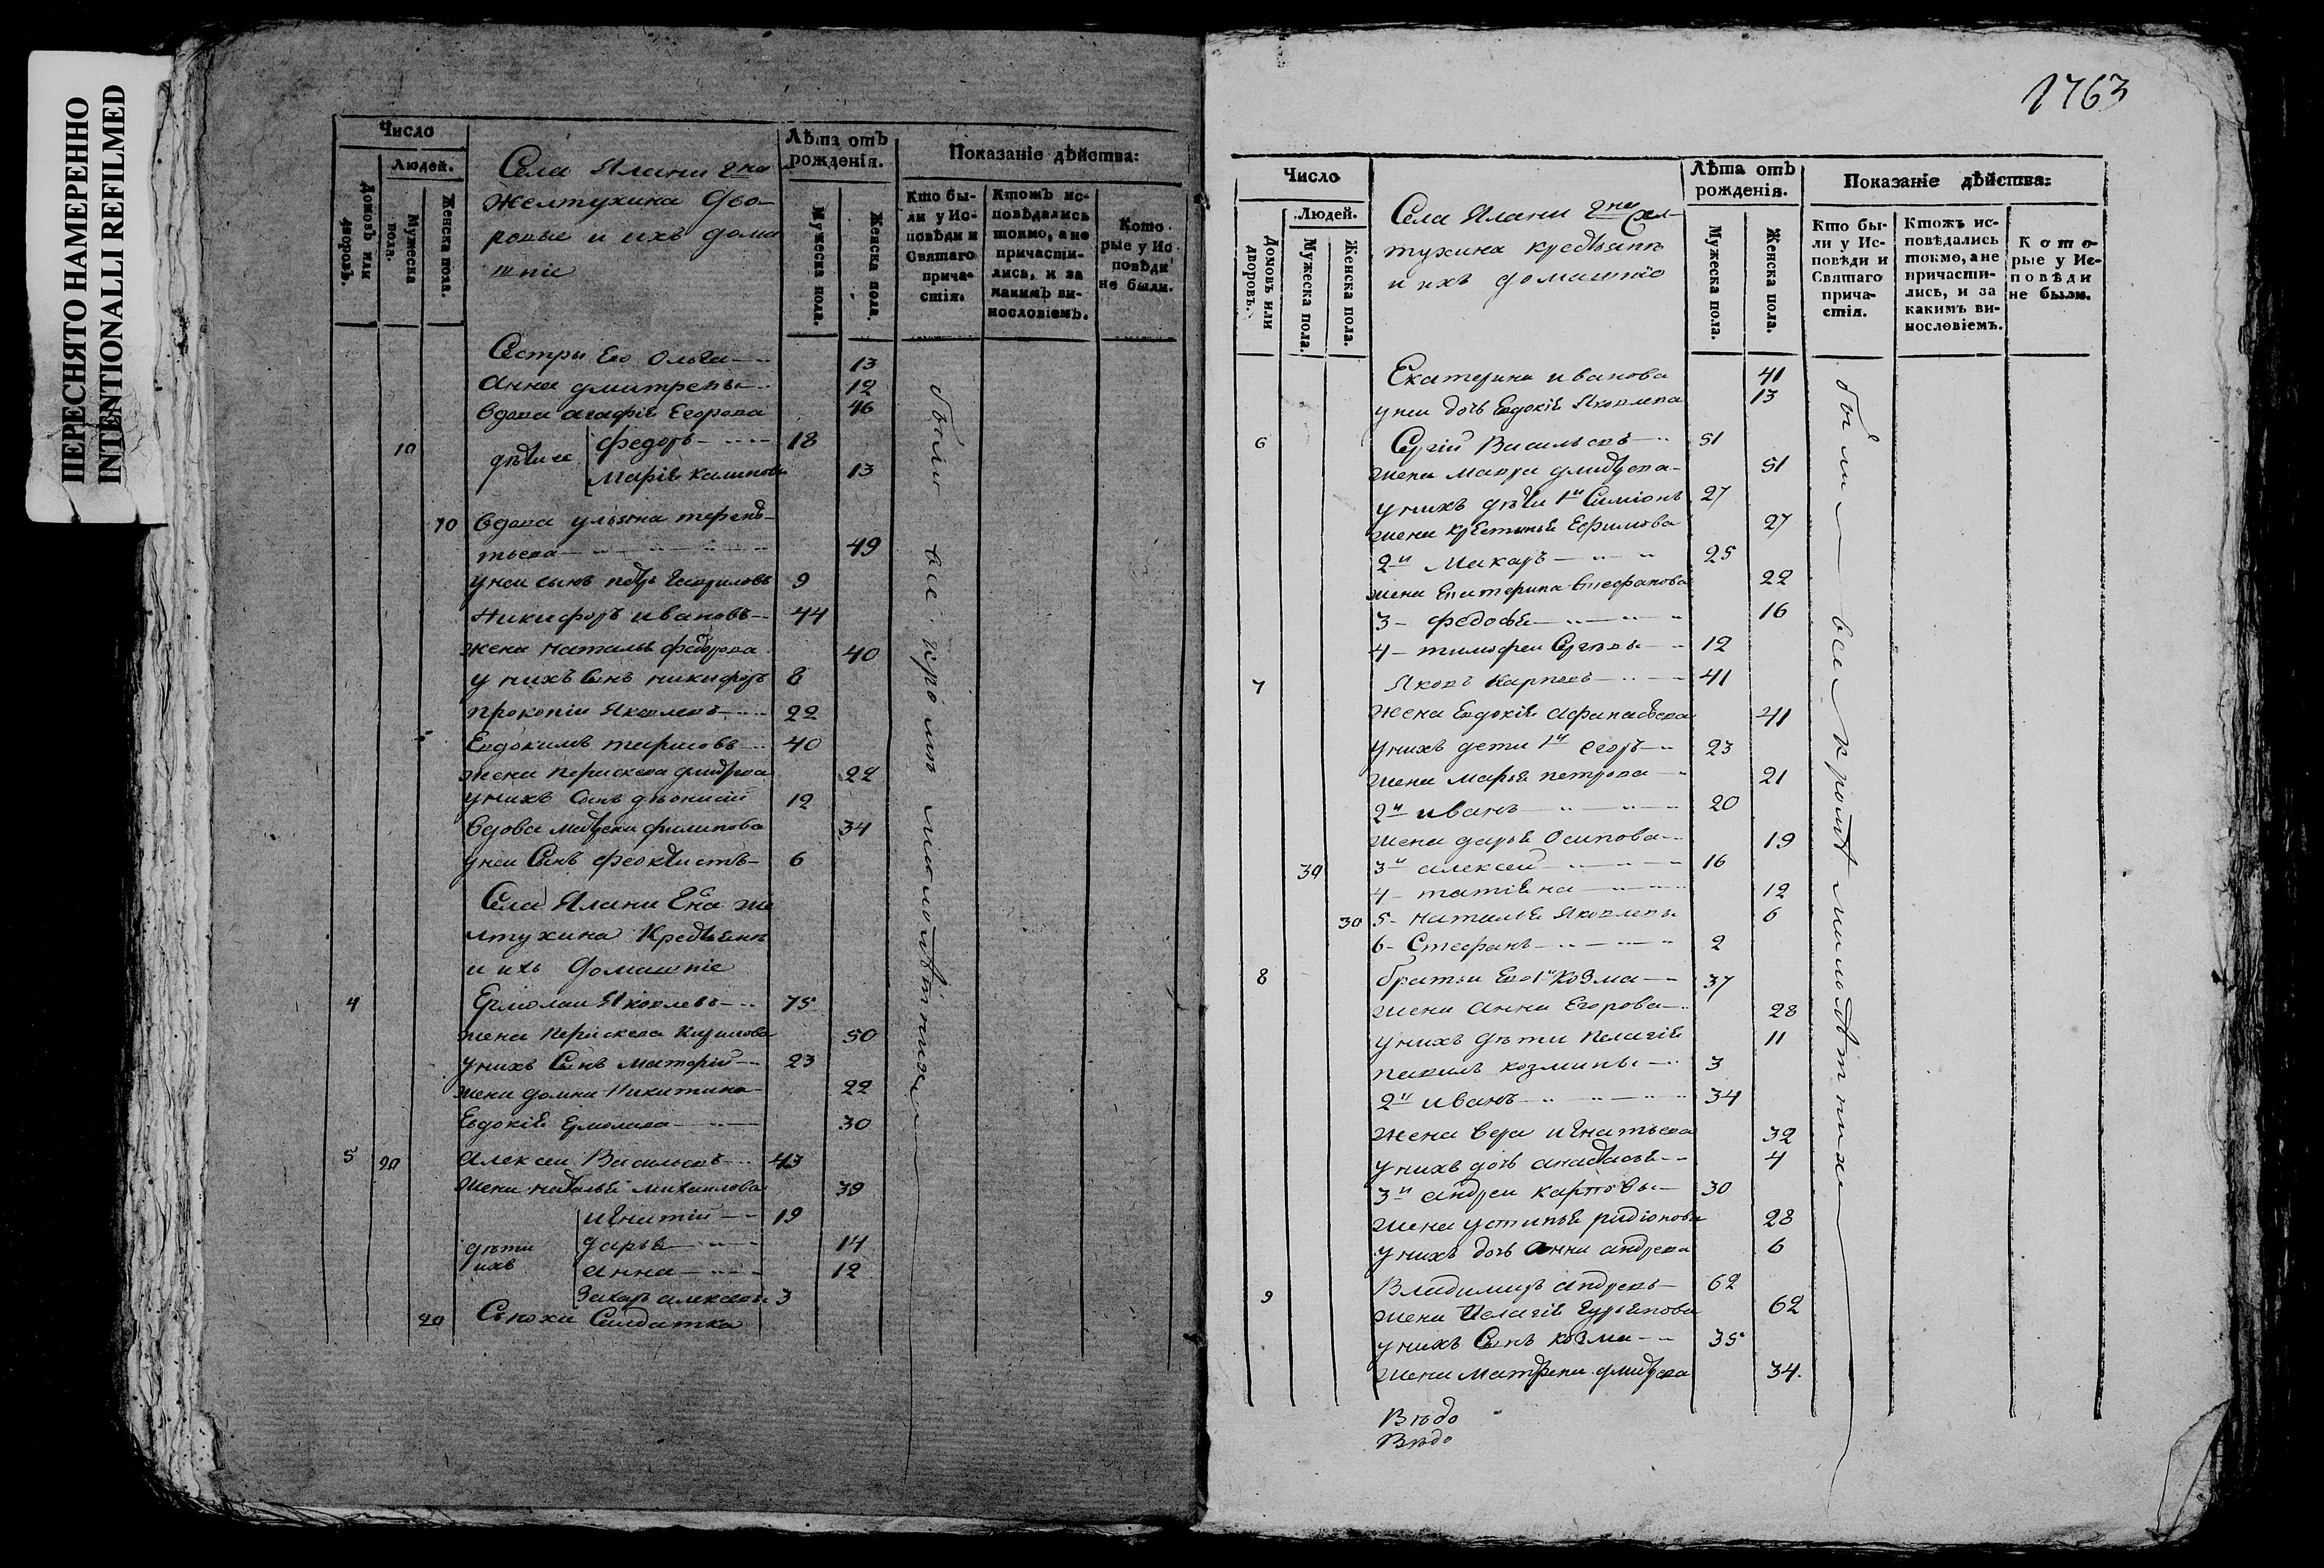 ПЕРЕСНЯТО НАМЕРЕННО
INTENTIONALLI REFILMED
Число
Людей.
Домовъ или дворовъ.
Мужеска пола.
Женска пола.
Села Ялани Гна
Желтухина Дво-
ровые и ихъ дома
шніе
Лѣта отъ рожденія.
Мужеска пола.
Женска пола.
Показаніе дѣйства:
Кто бы-
ли у Ис-
повѣди и
Святаго
прича-
стія.
Ктожъ ис-
повѣдались
токмо, а не
причасти-
лись, и за
какимъ ви-
нословіемъ.
Кото-
рые у Ис-
повѣди
не были.
Сестры Его Ольга 13
Анна дмитревы 12
вдова агафія Егорова 46
10 дѣти ее федоръ 18
марія 13
10 вдова ульяна терень-
тьева 49
у неи сынъ петръ Гавриловъ 9
Никифоръ ивановъ 44
жена наталья федорова 40
у нихъ Сынъ никифоръ 8
прокопіи Яковлевъ 22
Евдокимъ 40
жена 22
у нихъ Сынъ діонисіи 12
вдова филипова 34
у неи Сынъ феоктистъ 6
Села Ялани Гна Же
лтухина Крестьянъ
и ихъ Домашніе
4 Ермолаи Яковлевъ 75
жена 50
у нихъ Сынъ 23
жена домна Никитина 22
Евдокія 30
5 20 Алексеи Васильевъ 43
жена наталья михаилова 39
дѣти ихъ игнатіи 19
дарья 14
анна 12
Захаръ алексеевы 3
20 Сноха Салдатка
были все кромѣ малолѣтныхъ
1763
Число
Людей.
Домовъ или дворовъ.
Мужеска пола.
Женска пола.
Села Ялани Гна Жел-
тухина крестьянъ
и ихъ домашніе
Лѣта отъ рожденія.
Мужеска пола.
Женска пола.
Показаніе дѣйства:
Кто бы-
ли у Ис-
повѣди и
Святаго
прича-
стія.
Ктожъ ис-
повѣдались
токмо, а не
причасти-
лись, и за
какимъ ви-
нословіемъ.
Кото-
рые у Ис-
повѣди
не были.
Екатерина иванова 41
у неи дочь Евдокія Яковлева 13
6 Сергіи Васильевъ 51
жена мавра 51
у нихъ дѣти 1и Симіонъ 27
жена Ефимова 27
2и Макаръ 25
жена Екатерина Стефанова 22
3 федосья 16
4 тимофеи 12
7 Яковъ Карповъ 41
жена Евдокія афанасьева 41
у нихъ дети 1и егоръ 23
жена марья петрова 21
2и иванъ 20
жена дарья Осипова 19
39 3и алексеи 16
4 татіяна 12
30 5 наталья Яковлевы 6
6 Стефанъ 2
8 братья Его 1и Козма 37
жена Анна Егорова 28
у нихъ дѣти пелагія 11
козмины 3
2и иванъ 34
жена вера игнатьева 32
у нихъ дочь анастасья 4
3и андреи карповы 30
жена устинья 28
у нихъ дочь анна андреева 6
9 Владимиръ андреевъ 62
жена Пелагія 62
у нихъ Сынъ козма 35
жена матрена 34.
были все кромѣ малолѣтныхъ
Вѣдо
Вѣдо